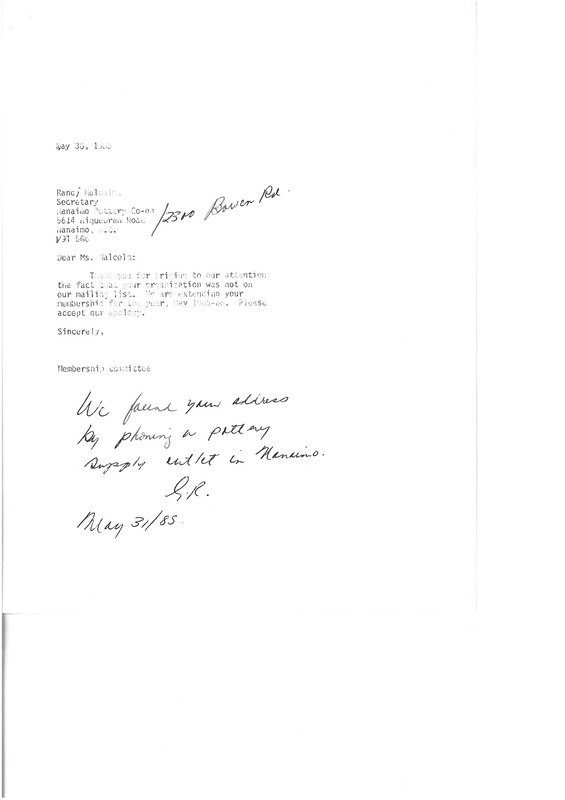 May 30, 1985
Randy Malcolm,
Secretary
Nanaimo Pottery Co-op /2300 Bowen Rd.
5614 Road
Nanaimo, B.C.
V9T 5G6
Dear Ms. Malcolm:
Thank you for briging to our attention
the fact that your organization was not on
our mailing list. We are extending your
membership for the year, May 1985-86. Please
accept our apology.
Sincerely,
Membership committee
We found your address
by phoning a pottery
supply outlet in Nanaimo.
G.R.
May 31/85.